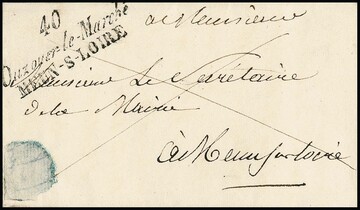 40
Ouzouer-le-Marché
MEUN-S-LOIRE
a Monsieur
Monsieur Le Secrétaire
de la Mairie
à Meun sur Loire